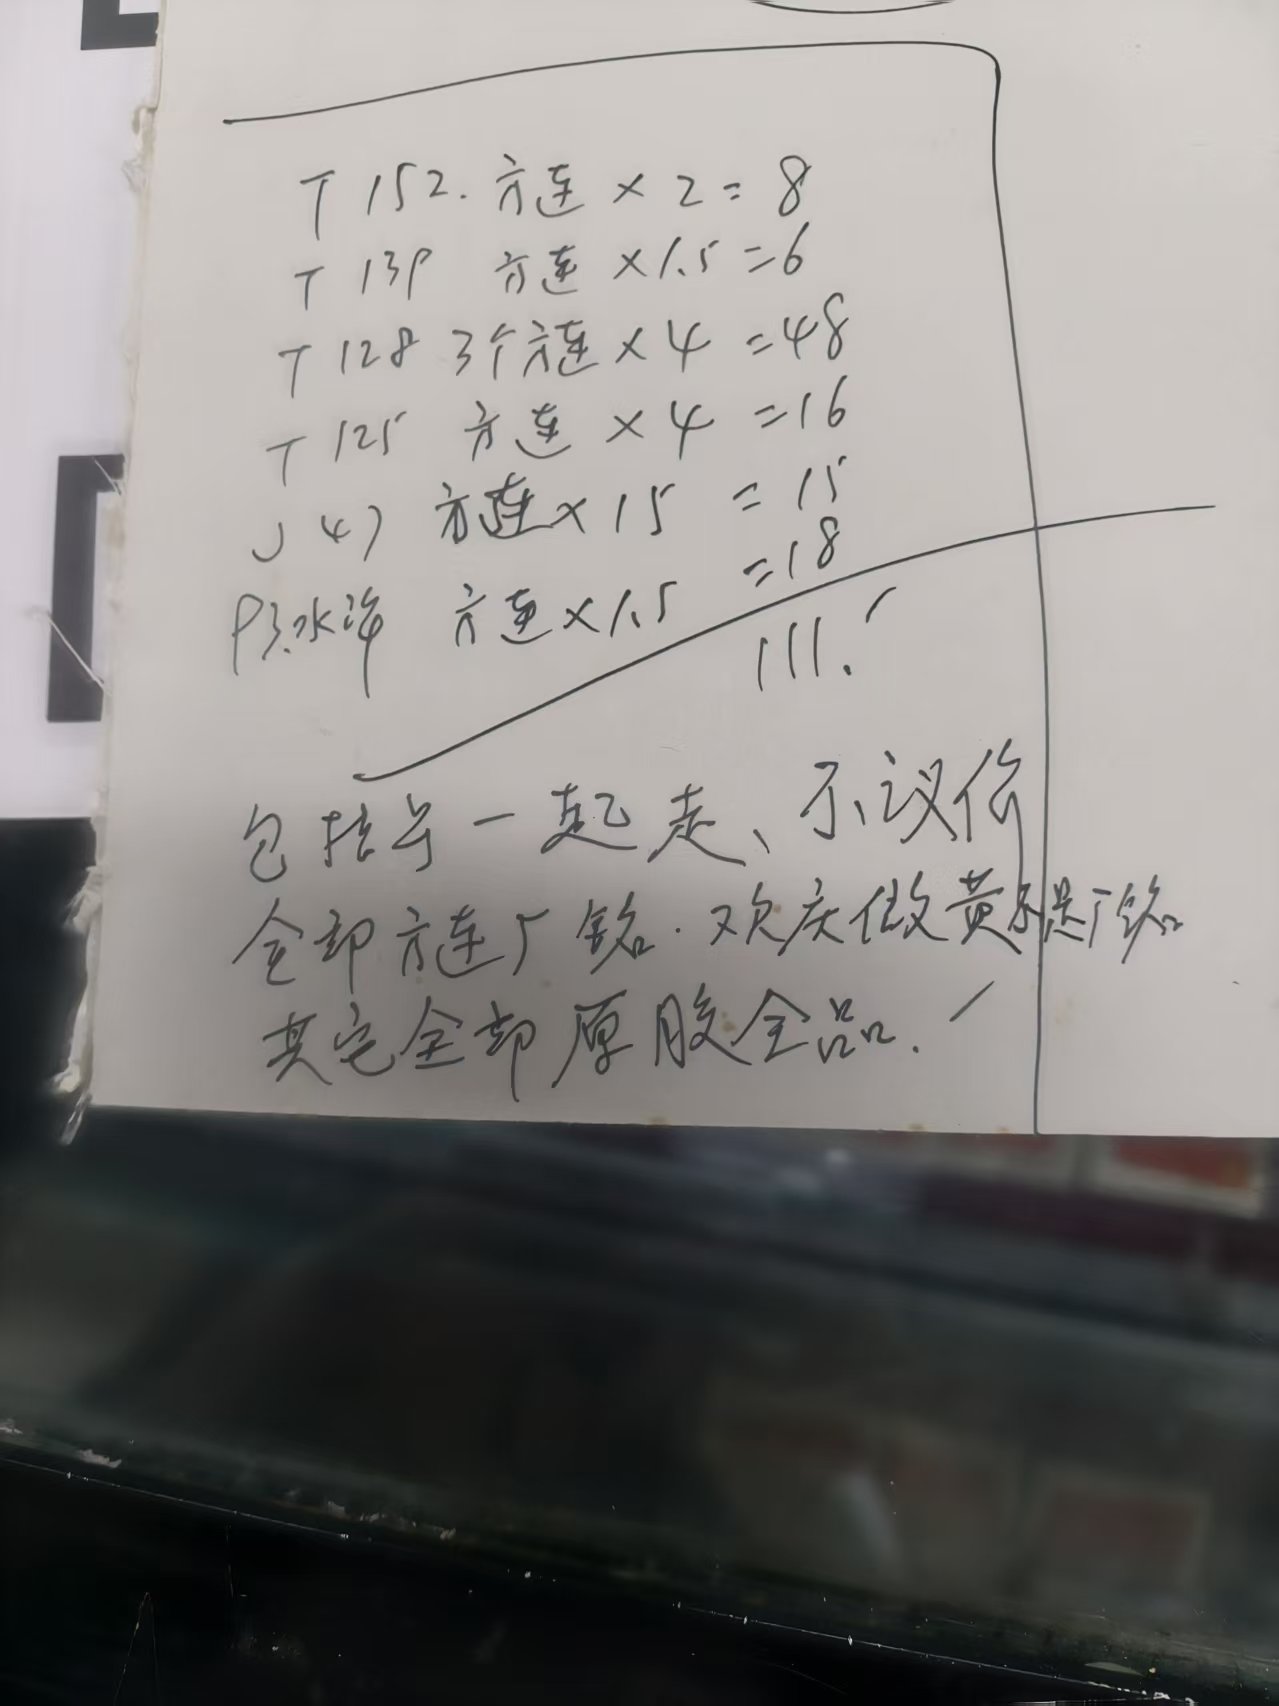 T 152. 方连 × 2 = 8
T 139 方连 × 1.5 = 6
T 128 3个方连 × 4 = 48
T 125 方连 × 4 = 16
J 47 方连 × 15 = 15
P3.水浒 方连 × 1.5 = 18
111.
包括号一起走、不议价
全部方连厂铭. 欢庆做黄不是厂铭
其它全部原胶全品.